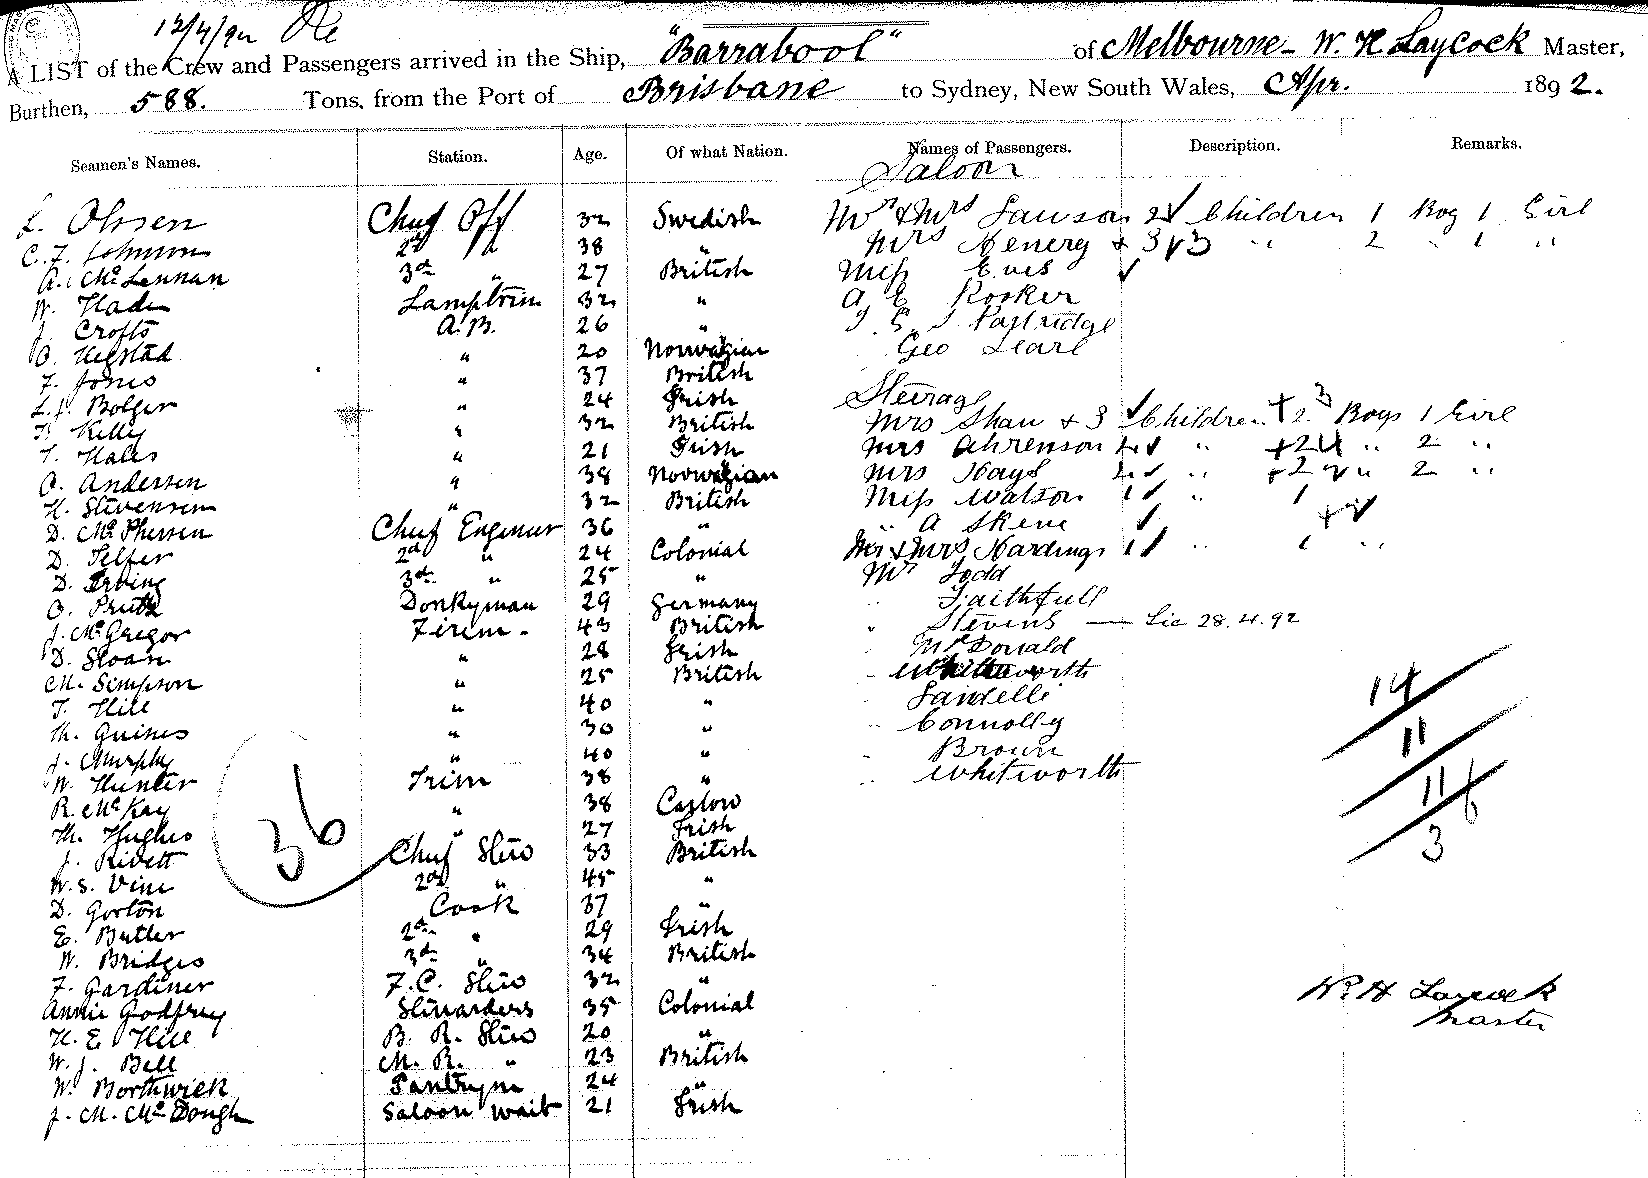 12/4/92
A LIST of the Crew and Passengers arrived in the Ship, "Barrabool" of Melbourne - W. H Laycock Master,
Burthen, 588. Tons, from the Port of Brisbane to Sydney, New South Wales, Apr. 1892.
Seamen's Names. Station. Age. Of what Nation. Names of Passengers. Description. Remarks.
Saloon
L. Olssen Chief Off 32 Swedish Mr & Mrs Lawson 2 Children 1 Boy 1 Girl
C. F. Johnson 2d " 38 " Mrs Henery & 3 3 " 2 " 1 "
A. McLennan 3rd " 27 British Miss Eves
W. Hade Lamptrim 32 " A E Rooker
J. Crofts A.B. 26 " J. E. J Partridge
O. Hegstad " 20 Norwegian Geo Searl
F. Jones " 37 British
L. J. Bolger " 24 Irish Steirage
Kelly " 32 British Mrs Shaw & 3 Children + 2 3 Boys 1 Girl
T. Hales " 21 Irish Mrs Ahrenson 4 " + 2 4 " 2 "
A. Andersen " 38 Norwegian Mrs Hays 4 " + 2 " 2 "
H. Stevenson " 32 British Miss Watson 1 " 1
D. McPhersen Chief Engineer 36 " " A Skene
D. Telfer 2nd " 24 Colonial Mr & Mrs Hardings 1 " 1 "
D. Irving 3rd " 25 " Mr Todd
O. Prutz Donkyman 29 Germany " Faithfull
J. McGregor Firem. 43 British " Stevens — Lic 28.4.92
D. Sloan " 28 Irish McDonald
M. Simpson " 25 British
T. Hill " 40 " " Sandelli
Th. Guines " 30 " " Connolly
J. Murphy " 40 " Brown
W. Hunter Trim 38 " " Whitworth
R. McKay " 38 Carlow
Th. Hughes " 27 Irish
J. Rivett Chief Stew 33 British
W. S. Vine 2nd " 45 "
D. Gorton Cook 37 "
E. Butler 2nd " 29 Irish
W. Bridges 3rd " 34 British
F. Gardiner F.C. Stew 32 "
Annie Godfrey Stewardess 35 Colonial
H. E Hill B. R. Stew 20 "
W. J. Bell M. R. " 23 British
W. Borthwick Pantrym 24 "
J. M. McDough Saloon Wait 21 Irish
36
14
11
11 6
3
W. H Laycock
Master